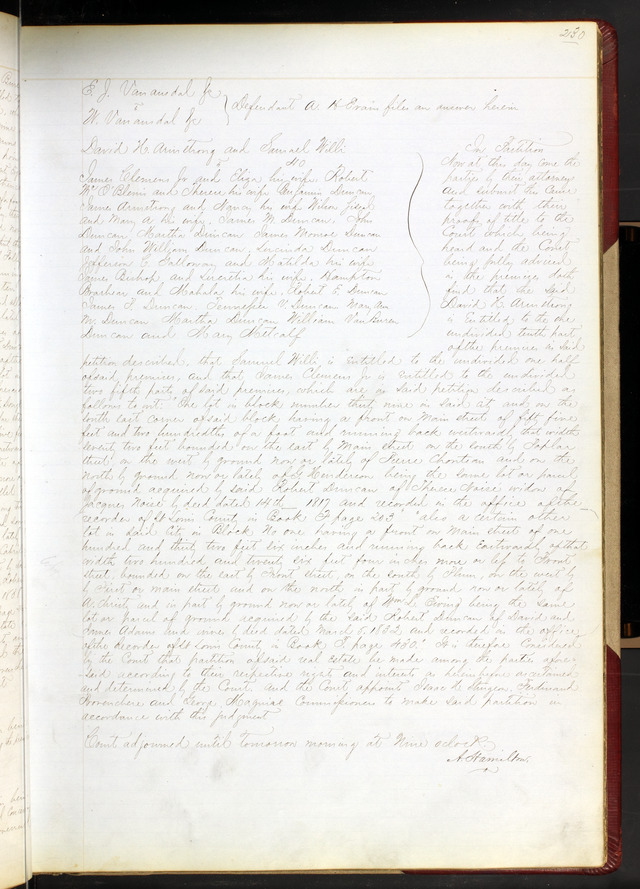 230
E. J. Vanansdal Jr
v
W. Vanansdal &c
Defendant A. H. Evain files an answer herein
David H Armstrong and Samuel Willi
v No
James Clemens Jr and Eliza his wife Robert
Wm O'Blenis and Therese his wife Benjamin Duncan
Jame Armstrong and Nancy his wife Wilson
and Mary A his wife, James M. Duncan, John
Duncan, Martha Duncan James Monroe Duncan
and John William Duncan Lucinda Duncan
Jefferson C. Galloway and Matilda his wife
James Bishop and Lucretia his wife Hampton
and Mahala his wife Robert E Duncan
James F. Duncan Tennessee V. Duncan Mary Ann
M. Duncan Martha Duncan William Van Buren
Duncan and Mary Metcalf
In Partition
Now at this day come the
parties by their attorneys
and submit the cause
together with their
proofs of title to the
Court which being
heard and the Court
being fully advised
in the premises doth
find that the said
David H. Armstrong
is Entitled to the one
undivided tenth part
of the premises in said
petition described; that Samuel Willi, is entitled to the undivided one half
of said premises, and that James Clemens Jr is entitled to the undivided
two fifth parts of said premises, which are in said petition described as
follows to wit: One lot in block number thirty nine in said city and on the
south east corner of said block having a front on Main street of fifty five
feet and two hundredths of a foot and running back westwardly that width
seventy two feet bounded on the east by Main street on the south by Poplar
street on the west by ground now or lately of Pierre Chouteau and on the
north by ground now or lately of Henderson being the same lot or parcel
of ground acquired by said Robert Duncan of Therese widow of
Jacques by deed dated 14th 1817 and recorded in the office of the
recorder of St Louis County in Book F page 263 also a certain other
lot in said City in Block No one having a front on Main street of one
hundred and thirty two feet six inches and running back Eastwardly of that
width two hundred and twenty six feet four inches more or less to Front
street, bounded on the east by Front street, on the south by Plum, on the west by
by First or main street and on the north in part by ground now or lately of
A. Christ and in part by ground now or lately of Wm L. Ewing being the same
lot or parcel of ground acquired by the said Robert Duncan of David and
James Adams and wives by deed dated March 5, 1832 and recorded in the office
of the recorder of St Louis County in Book S. page 480. It is therefore Considered
by the Court that partition of said real estate be made among the parties afore
said according to their respective rights and interests as hereinbefore ascertained
and determined by the Court, and the Court appoints Isaac H. Sturgeon Ferdinand
Provenchere and George Maguire Commissioners to make said partition in
accordance with this judgment
Court adjourned until tomorrow morning at Nine oclock
A Hamilton